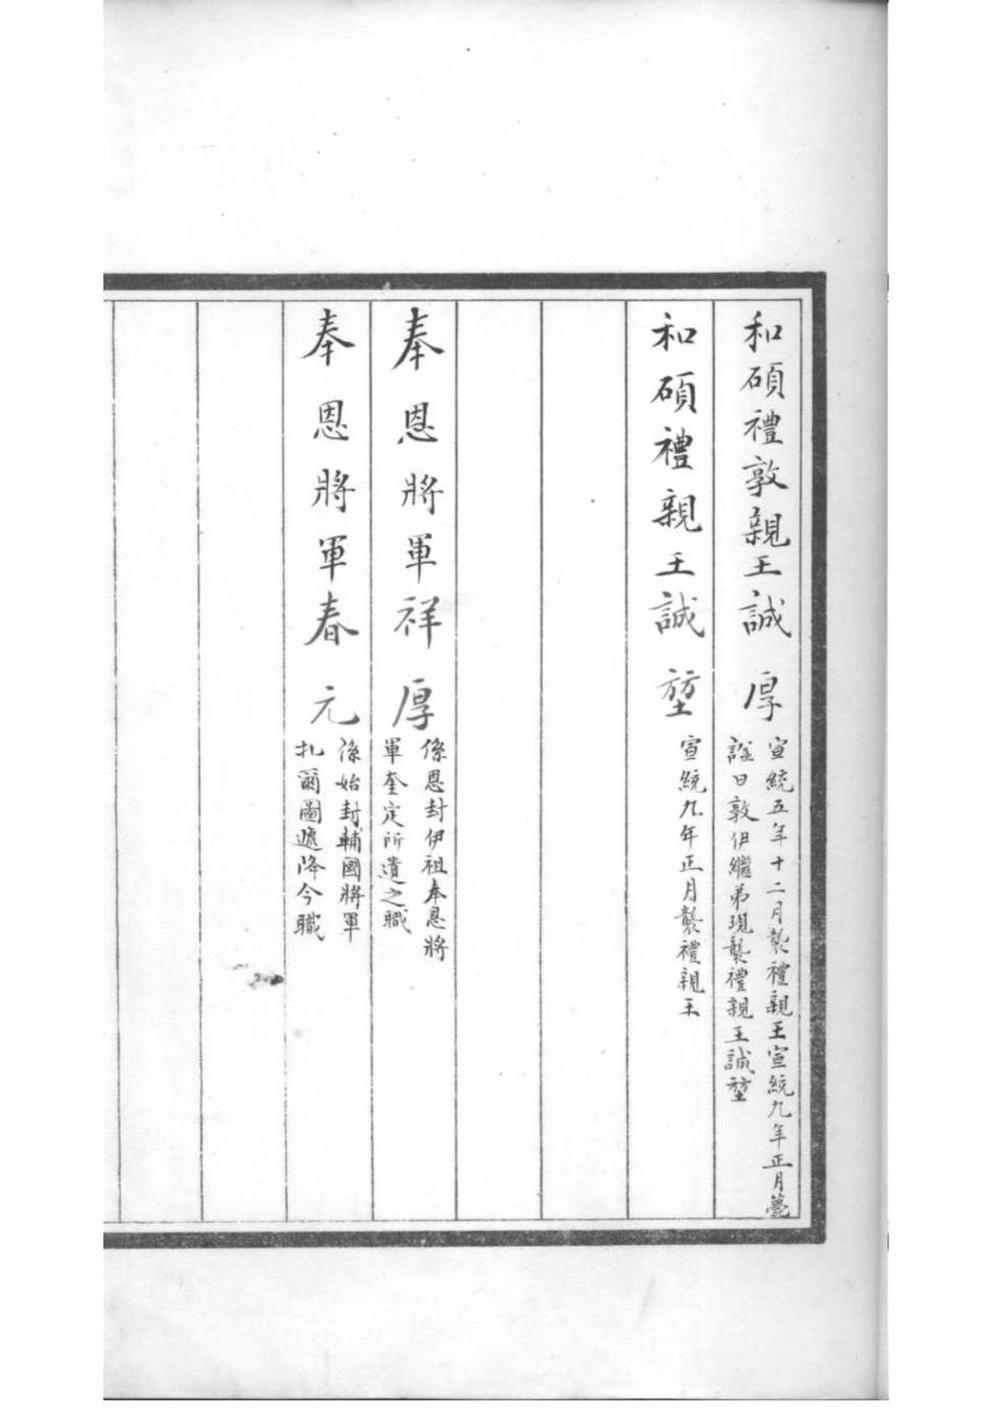 和碩禮敦親王誠厚
宣統五年十二月襲禮親王宣統九年正月薨
諡曰敦伊繼弟現襲禮親王誠堃
和碩禮親王誠堃
宣統九年正月襲禮親王
奉恩將軍祥厚
係恩封伊祖奉恩將
軍奎定所遺之職
奉恩將軍春元
係始封輔國將軍
扎爾圖遞降今職